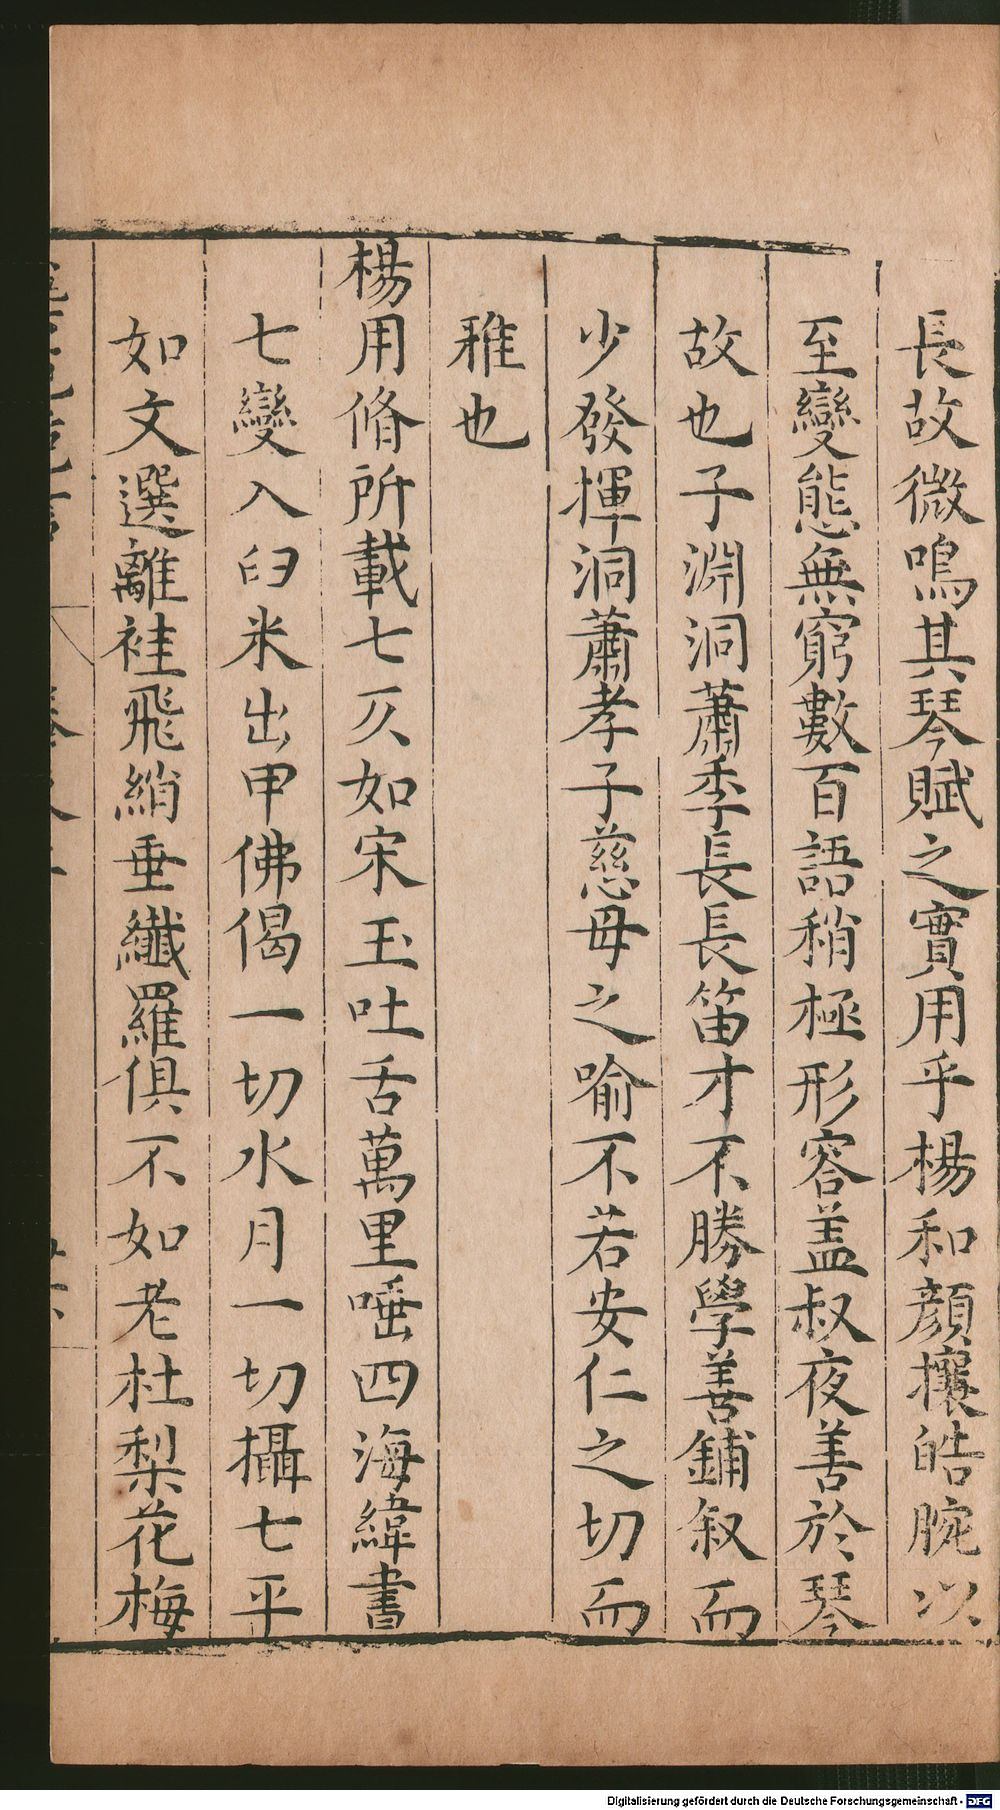 長故微鳴其琴賦之實用乎楊和顏攘皓腕以
至變態無窮數百語稍極形容盖叔夜善於琴
故也子淵洞蕭季長長笛才不勝學善鋪叙而
少發揮洞蕭孝子慈母之喻不若安仁之切而
稚也
楊用脩所載七仄如宋玉吐舌萬里唾四海緯書
七變入臼米出甲佛偈一切水月一切攝七平
如文選離袿飛綃垂纖羅俱不如老杜梨花梅
Digitalisierung gefördert durch die Deutsche Forschungsgemeinschaft - DFG